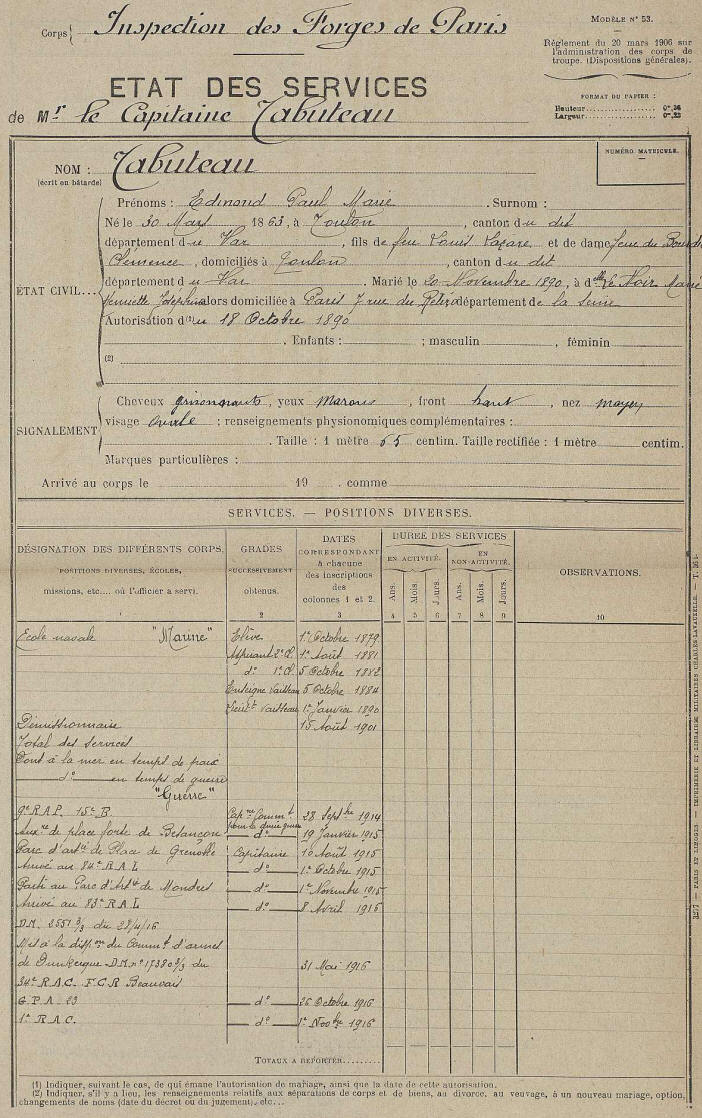 Corps Inspection des Forges de Paris
MODÈLE N° 53.
Règlement du 20 mars 1906 sur
l'administration des corps de
troupe. (Dispositions générales.)
FORMAT DU PAPIER :
Hauteur.................. 0m,36
Largeur.................. 0m,23
ETAT DES SERVICES
de Mr le Capitaine Tabuteau
NUMÉRO MATRICULE.
NOM : Tabuteau
(écrit en bâtarde)
Prénoms : Edmond Paul Marie . Surnom :
Né le 30 Mars 1863, à Toulon , canton du dit
département du Var , fils de feu Louis Lazare et de dame feue du
Clémence , domiciliés à Toulon , canton du dit
département du Var . Marié le 20 Novembre 1890, à dlle Le Noir Marie
Henriette Joséphine alors domiciliée à Paris 7 rue du département de la Seine
ÉTAT CIVIL...
Autorisation d(1)u 18 Octobre 1890
. Enfants : ; masculin , féminin
(2)
SIGNALEMENT
Cheveux grisonnants, yeux Marons , front haut , nez moyen
visage ovale ; renseignements physionomiques complémentaires :
. Taille : 1 mètre 65 centim. Taille rectifiée : 1 mètre centim.
Marques particulières :
Arrivé au corps le 19 . comme
SERVICES. — POSITIONS DIVERSES.
DÉSIGNATION DES DIFFÉRENTS CORPS,
POSITIONS DIVERSES, ÉCOLES,
missions, etc.... où l'officier a servi.
GRADES
SUCCESSIVEMENT
obtenus.
DATES
CORRESPONDANT
à chacune
des inscriptions
des
colonnes 1 et 2.
DURÉE DES SERVICES
EN ACTIVITÉ.
EN
NON-ACTIVITÉ.
Ans. Mois. Jours. Ans. Mois. Jours.
OBSERVATIONS.
1 2 3 4 5 6 7 8 9 10
Ecole navale "Marine" Elève 1er Octobre 1879
Aspirant 2e Cl. 1er Août 1881
do 1e Cl. 5 Octobre 1882
Enseigne Vaisseau 5 Octobre 1884
Lieutt Vaisseau 1er Janvier 1890
Démissionnaire 15 Août 1901
Total des services
Dont à la mer en temps de paix
do en temps de guerre
"Guerre"
9e R.A.P. 15e B. Capne Commt 28 Septbre 1914
pour la durée guerre
Auxre de place forte de Besançon do 19 Janvier 1915
Parc d'artie de Place de Grenoble Capitaine 10 Août 1915
Arrivé au 84e R.A.L do 1er Octobre 1915
Parti au Parc d'Artie de do 1er Novembre 1915
Arrivé au 83e R.A.L do 8 Avril 1916
D.M. 2551 3/3 du 28/4/16
Mis à la dispon du Commt d'armes
de Dunkerque D.M. n° 17380 3/3 du 31 Mai 1916
34e R.A.C. F.C.R Beauvais
G.P.A. 23 do 26 Octobre 1916
1er R.A.C. do 1er Novbre 1916
TOTAUX A REPORTER.........
(1) Indiquer, suivant le cas, de qui émane l'autorisation de mariage, ainsi que la date de cette autorisation.
(2) Indiquer, s'il y a lieu, les renseignements relatifs aux séparations de corps et de biens, au divorce, au veuvage, à un nouveau mariage, option,
changements de noms (date du décret ou du jugement), etc...
3277 — PARIS ET LIMOGES — IMPRIMERIE ET LIBRAIRIE MILITAIRES CHARLES-LAVAUZELLE.